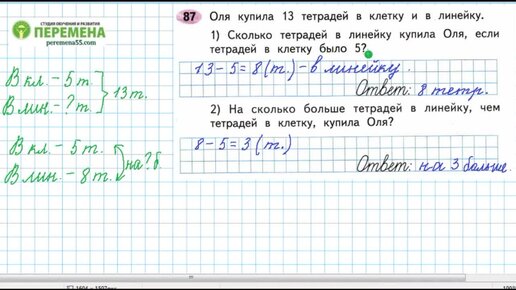 СТУДИЯ ОБУЧЕНИЯ И РАЗВИТИЯ
ПЕРЕМЕНА
peremena55.com
87 Оля купила 13 тетрадей в клетку и в линейку.
1) Сколько тетрадей в линейку купила Оля, если
тетрадей в клетку было 5?
13 - 5 = 8 (т.) - в линейку
Ответ: 8 тетр.
2) На сколько больше тетрадей в линейку, чем
тетрадей в клетку, купила Оля?
8 - 5 = 3 (т.)
Ответ: на 3 больше.
В кл. - 5 т.
В лин. - ? т.
13 т.
В кл. - 5 т.
В лин. - 8 т.
на ? б.